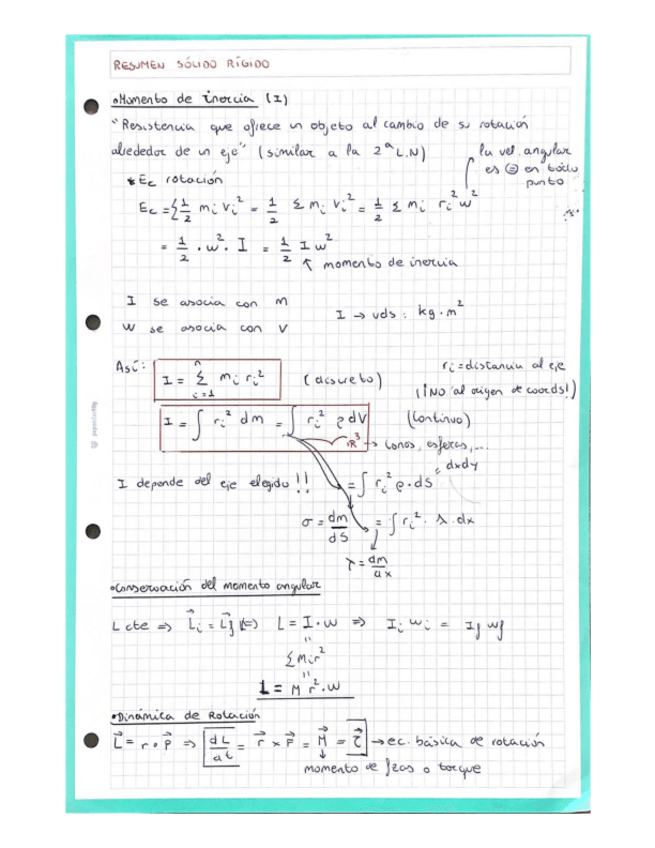 RESUMEN SÓLIDO RÍGIDO
•Momento de inercia (I)
"Resistencia que ofrece un objeto al cambio de su rotación
alrededor de un eje" (similar a la 2ª L.N)
la vel. angular
es ⊜ en todo
punto
* Ec rotación
Ec = Σ 1/2 mi vi² = 1/2 Σ mi vi² = 1/2 Σ mi ri² w²
= 1/2 · w² · I = 1/2 I w²
↑ momento de inercia
I se asocia con m
W se asocia con V
I → uds: kg·m²
Así:
I = Σ mi ri² (discreto)
n
i=1
ri = distancia al eje
(¡¡NO al origen de coords!)
I = ∫ ri² dm = ∫ ri² ρ dV (continuo)
ℝ³ → conos, esferas, ...
I depende del eje elegido !!
= ∫ ri² ρ · dS
= dxdy
σ = dm/dS
= ∫ ri² · λ · dx
λ = dm/dx
•Conservación del momento angular
L cte ⇒ L⃗i = L⃗f ⇔ L = I · w ⇒ Ii wi = If wf
"
Σ mi r²
"
L = M r² · w
•Dinámica de Rotación
L⃗ = r ∘ p⃗ ⇒ dL/dt = r⃗ × F⃗ = M⃗ = τ⃗ → ec. básica de rotación
momento de fzas o torque